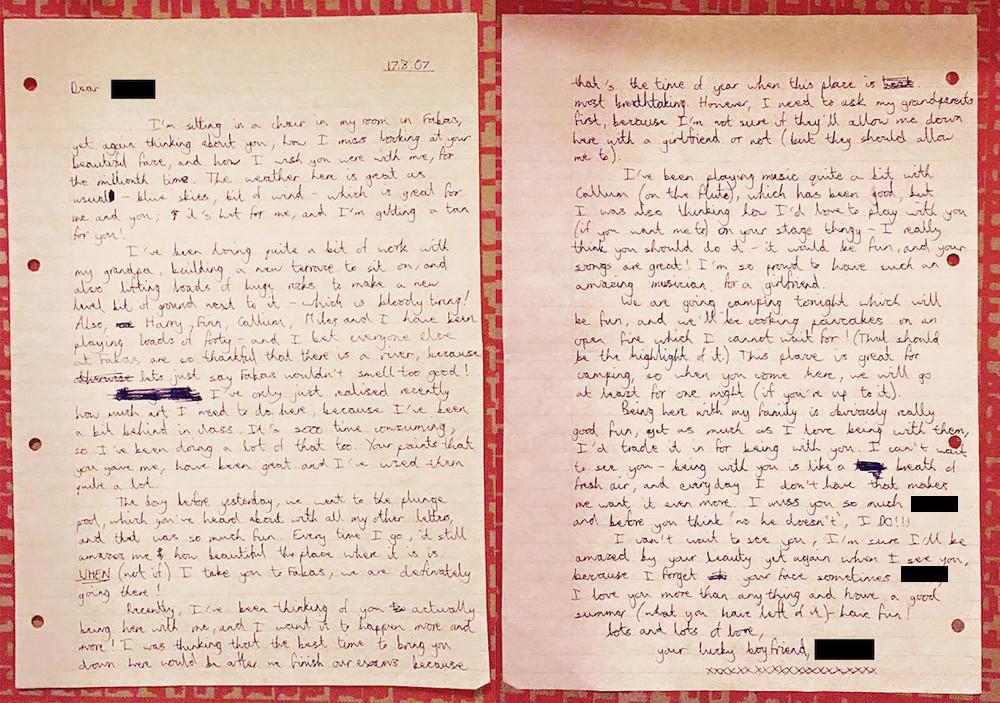 17.8.07
Dear
I'm sitting in a chair in my room in Fakas,
yet again thinking about you, how I miss looking at your
beautiful face, and how I wish you were with me, for
the millionth time. The weather here is great as
usual - blue skies, bit of wind - which is great for
me and you; it's hot for me, and I'm getting a tan
for you!
I've been doing quite a bit of work with
my grandpa, building a new terrace to sit on, and
also lifting loads of huge rocks to make a new
level bit of ground next to it - which is bloody tiring!
Also, Harry, Finn, Callum, Miles and I have been
playing loads of forty - and I bet everyone else
at Fakas are so thankful that there is a river, because
otherwise lets just say Fakas wouldn't smell too good!
I've only just realised recently
how much art I need to do here, because I've been
a bit behind in class. It's sooo time consuming,
so I've been doing a lot of that too. Your paints that
you gave me, have been great and I've used them
quite a lot.
The day before yesterday, we went to the plunge
pool, which you've heard about with all my other letters,
and that was so much fun. Every time I go, it still
amazes me how beautiful the place where it is is.
WHEN (not if) I take you to Fakas, we are definately
going there!
Recently, I've been thinking of you actually
being here with me, and I want it to happen more and
more! I was thinking that the best time to bring you
down here would be after we finish our exams because
that's the time of year when this place is
most breathtaking. However, I need to ask my grandparents
first, because I'm not sure if they'll allow me down
here with a girlfriend or not (but they should allow
me to).
I've been playing music quite a bit with
Callum (on the flute), which has been good, but
I was also thinking how I'd love to play with you
(if you want me to) on your stage thingy - I really
think you should do it - it would be fun, and your
songs are great! I'm so proud to have such an
amazing musician for a girlfriend.
We are going camping tonight which will
be fun, and we'll be cooking pancakes on an
open fire which I cannot wait for! (That should
be the highlight of it.) This place is great for
camping, so when you come here, we will go
at least for one night (if you're up to it).
Being here with my family is obviously really
good fun, yet as much as I love being with them,
I'd trade it in for being with you. I can't wait
to see you - being with you is like a breath of
fresh air, and everyday I don't have that makes
me want it even more. I miss you so much
and before you think 'no he doesn't', I DO!!!
I can't want to see you, I'm sure I'll be
amazed by your beauty yet again when I see you,
because I forget your face sometimes
I love you more than anything and have a good
summer (what you have left of it) - have fun!
lots and lots of love,
your lucky boyfriend,
xxxxxxxxxxxxxxxxxx